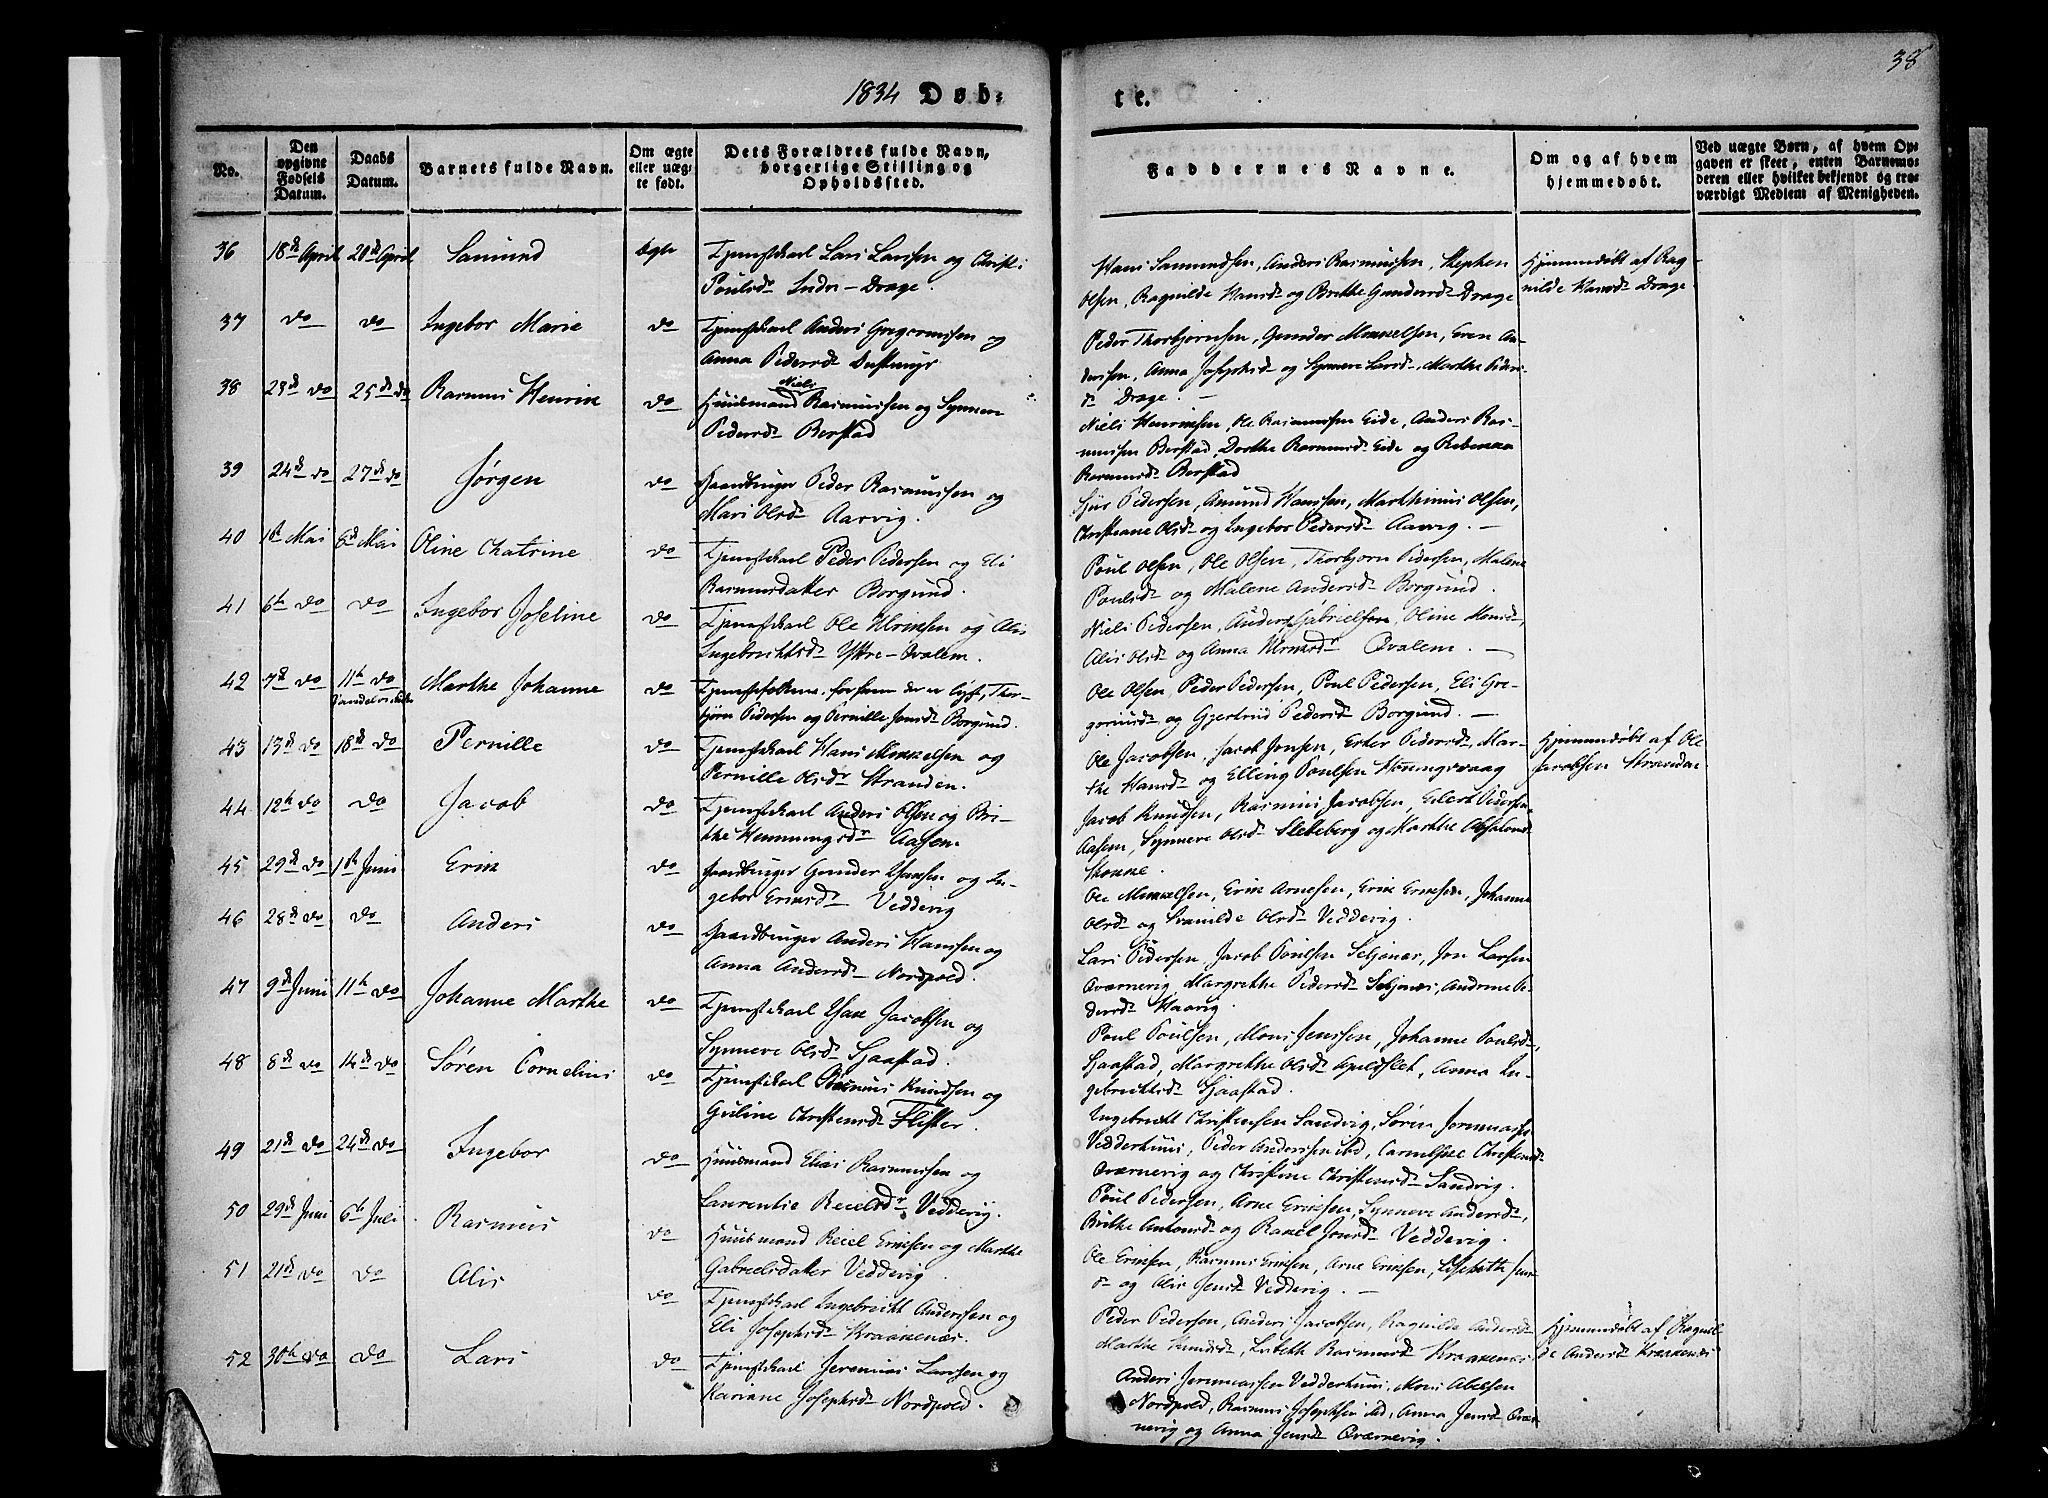 38
1834 Døb-
te.
No.
Den opgivne Fødsels Datum.
Daabs Datum.
Barnets fulde Navn.
Om ægte eller uægte født.
Dets Forældres fulde Navn, borgerlige Stilling og Opholdssted.
Faddernes Navne.
Om og af hvem hjemmedøbt.
Ved uægte Børn, af hvem Opgaven er skeet, enten Barnemoderen eller hvilket bekjendt og troværdigt Medlem af Menigheden.
36 18de April 20de April Samund ægte Tjenestekarl Lars Larssen og Christi
Poulsdr Indre-Drage.
Hans Samundsen, Anders Rasmussen, Stephen
Olsen, Ragnilde Hansdr og Brithe Gundersdr Drage
Hjemmedøbt af Rag-
nilde Hansdr Drage
37 do do Ingebor Marie do Tjenestekarl Anders Gregoriussen og
Anna Pedersdr
Peder Thorbjørnsen, Gunder Mikkelsen, Even An-
derssen, Anna Josephsdr og Synneve Larsdr, Marthe Peders-
dr Drage.
38 23de do 25de do Rasmus Henrik do Huusmand Niels Rasmussen og Synneve
Pedersdr Berstad
Niels Henriksen, Ole Rasmussen Eide, Anders Ras-
mussen Berstad, Dorthe Rasmusdr Eide og Rebekka
Rasmusdr Berstad
39 24de do 27de do Jørgen do Gaardbruger Peder Rasmussen og
Mari Olsdr Aarvig.
Sjur Pedersen, Amund Hanssen, Marthinus Olsen,
Christiane Olsdr og Ingebor Pedersdr Aarvig.
40 1ste Mai 8de Mai Oline Chatrine do Tjenestekarl Peder Pedersen og Eli
Rasmusdatter Borgund.
Poul Olsen, Ole Olsen, Thorbjørn Pedersen, Malene
Poulsdr og Malene Andersdr Borgund.
41 6te do do Ingebor Joseline do Tjenestekarl Ole Ulriksen og Alis
Ingebrichtsdr Yttre-Qvalem.
Niels Pedersen, Anders Gabrielsen, Oline Monsdr,
Alis Olsdr og Anna Ulriksdr Qvalem.
42 7de do 11te do Marthe Johanne do Tjenestefolkene, for hvem der er lyst, Thor-
bjørn Pedersen og Pernille Jonsdr Borgund.
Ole Olsen, Peder Pedersen, Poul Pedersen, Eli Gre-
goriusdr og Gjertrud Pedersdr Borgund.
43 13de do 18de do Pernille do Tjenestekarl Hans Mikkelsen og
Pernille Olsdr Stranden.
Ole Jacobsen, Jacob Jonsen, Ester Pedersdr, Mar-
the Hansdr og Elling Poulsen Honingsvaag
Hjemmedøbt af Ole
Jacobsen Stranden
44 12te do do Jacob do Tjenestekarl Anders Olsen og Bri-
the Hemmingsdr Aasen.
Jacob Knudsen, Rasmus Jacobsen, Eilert Pedersen
Aasen, Synneve Olsdr Sletteberg og Marthe Absalonsdr
45 29de do 1ste Juni Erik do Gaardbruger Gunder Hansen og In-
gebor Eriksdr Vedderig
Ole Mikkelsen, Erik Arnesen, Erik Eriksen, Johanne
Olsdr og Svanilde Olsdr Vedderig.
46 28de do do Anders do Gaardbruger Anders Hanssen og
Anna Andersdr Nordpold.
Lars Pedersen, Jacob Poulsen Seljenæs, Jon Larsen
Qværnevig Margrethe Pedersdr Seljenæs, Andrine Pe-
dersdr Haavig.
47 9de Junii 11te do Johanne Marthe do Tjenestekarl Jacobsen og
Synneve Olsdr Sjaastad.
Poul Poulsen, Mons Jenssen, Johanne Poulsdr,
Sjaastad, Margrethe Olsdr Apeldflot, Anna In-
gebrichtsdr Sjaastad.
48 8de do 14de do Søren Cornelius do Tjenestekarl Rasmus Knudsen og
Guline Christensdr Flister.
Ingebricht Christensen Sandvig, Søren Jeremiassen
Vedderhuus, Peder Anderssen ibd, Christensdr
Qværnevig og Christine Christensdr Sandvig.
49 21de do 24de do Ingebor do Huusmand Elias Rasmussen og
Laurentie Reielsdr Vedderig.
Poul Pedersen, Arne Eriksen, Synneve Andersdr,
Brithe Antonsdr og Rakel Jonsdr Vedderig.
50 29de Juni 6te Juli Rasmus do Huusmand Reiel Eriksen og Marthe
Gabrielsdatter Vedderig.
Ole Eriksen, Rasmus Eriksen, Arne Eriksen, Lisebeth Jens-
dr og Alis Jensdr Vedderig.
51 21de do do Alis do Tjenestekarl Ingebricht Anderssen og
Eli Josephsdr Kraakenæs.
Peder Pedersen, Anders Jacobsen, Ragnilde Andersdr
Marthe Knudsdr, Lisbeth Rasmusdr Kraakenæs
Hjemmedøbt af Ragnil-
de Andersdr Kraakenæs
52 30te do do Lars do Tjenestekarl Jeremias Larssen og
Kariane Josephsdr Nordpold.
Anders Jeremiassen Vedderhuus, Mons Abelsen
Nordpold, Rasmus Josephsen ibd, Anna Jensdr Qvær-
nevig og Anna Jensdr Qværnevig.